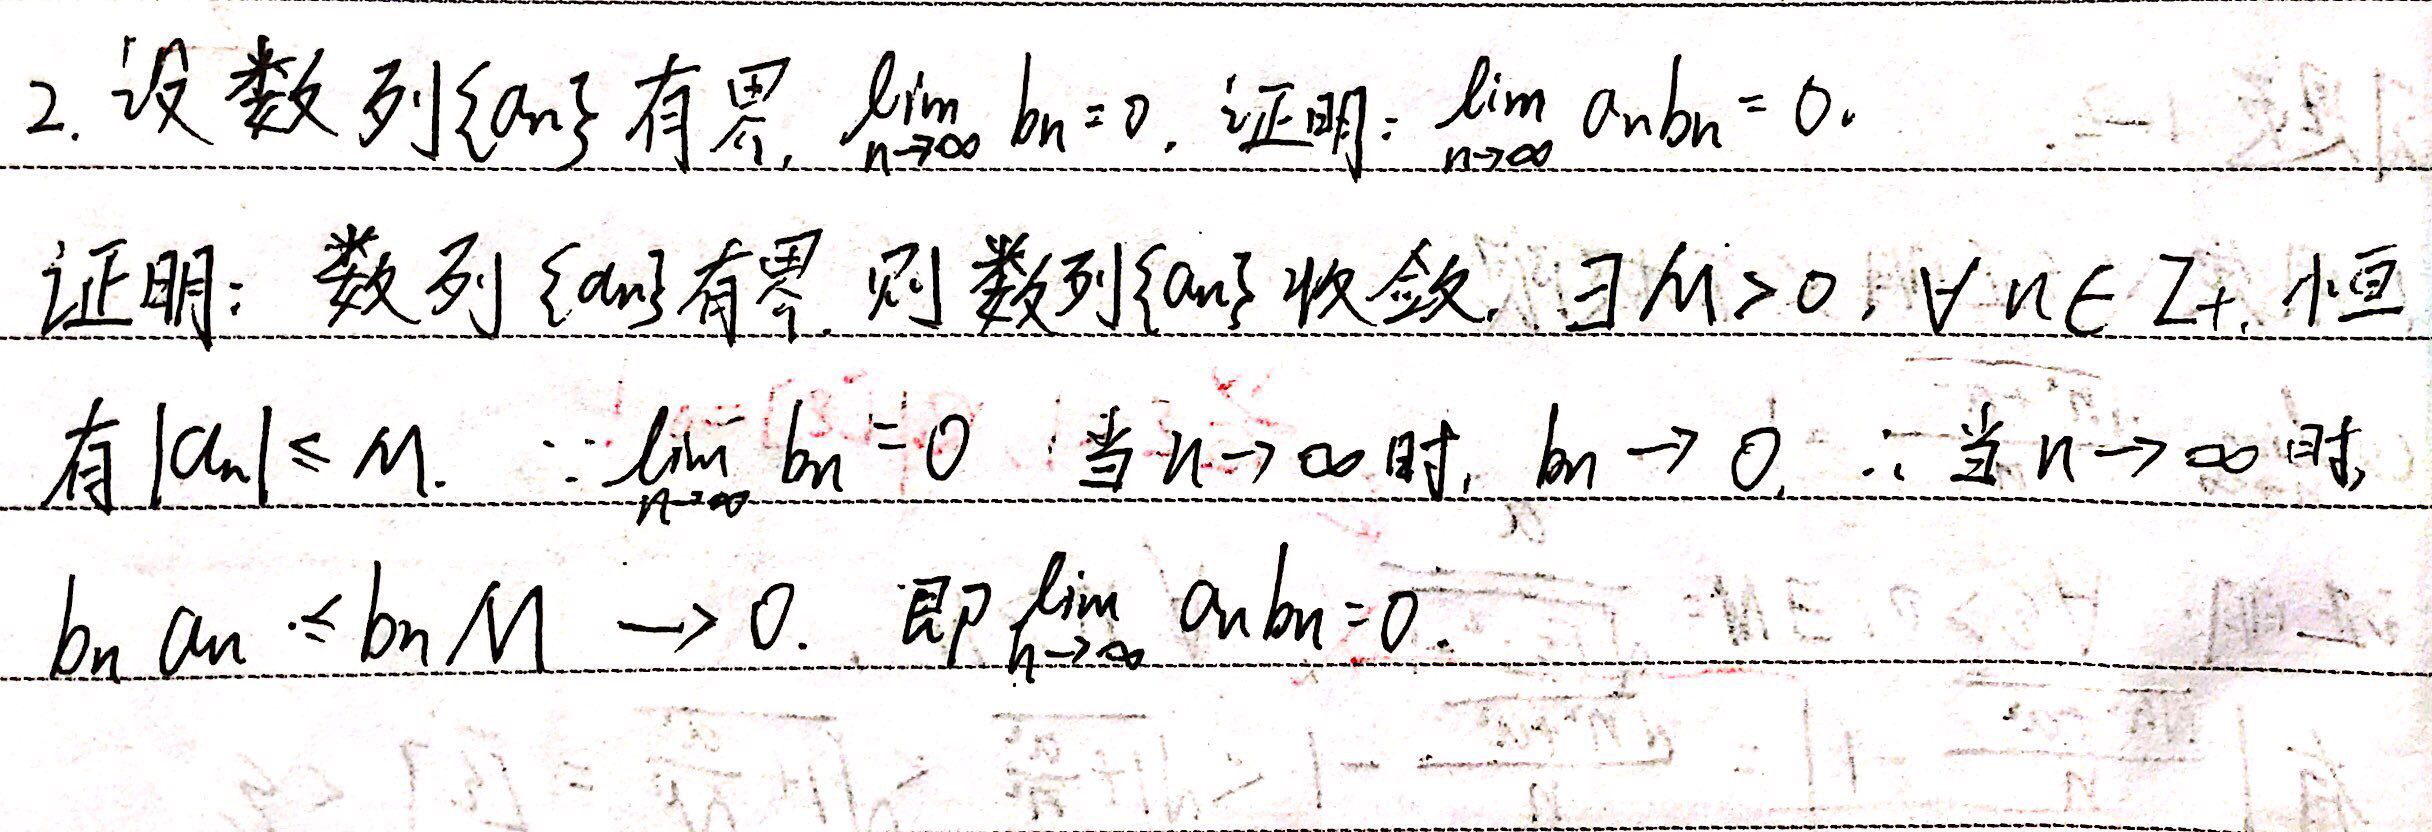 2. 设数列{an}有界, lim n→∞ bn=0. 证明: lim n→∞ anbn=0.
证明: 数列{an}有界. 则数列{an}收敛. ∃M>0, ∀n∈Z+, 恒
有|an|≤M. ∵ lim n→∞ bn=0 当n→∞时, bn→0, ∴当n→∞时,
bn an ≤ bn M → 0. 即 lim n→∞ anbn=0.